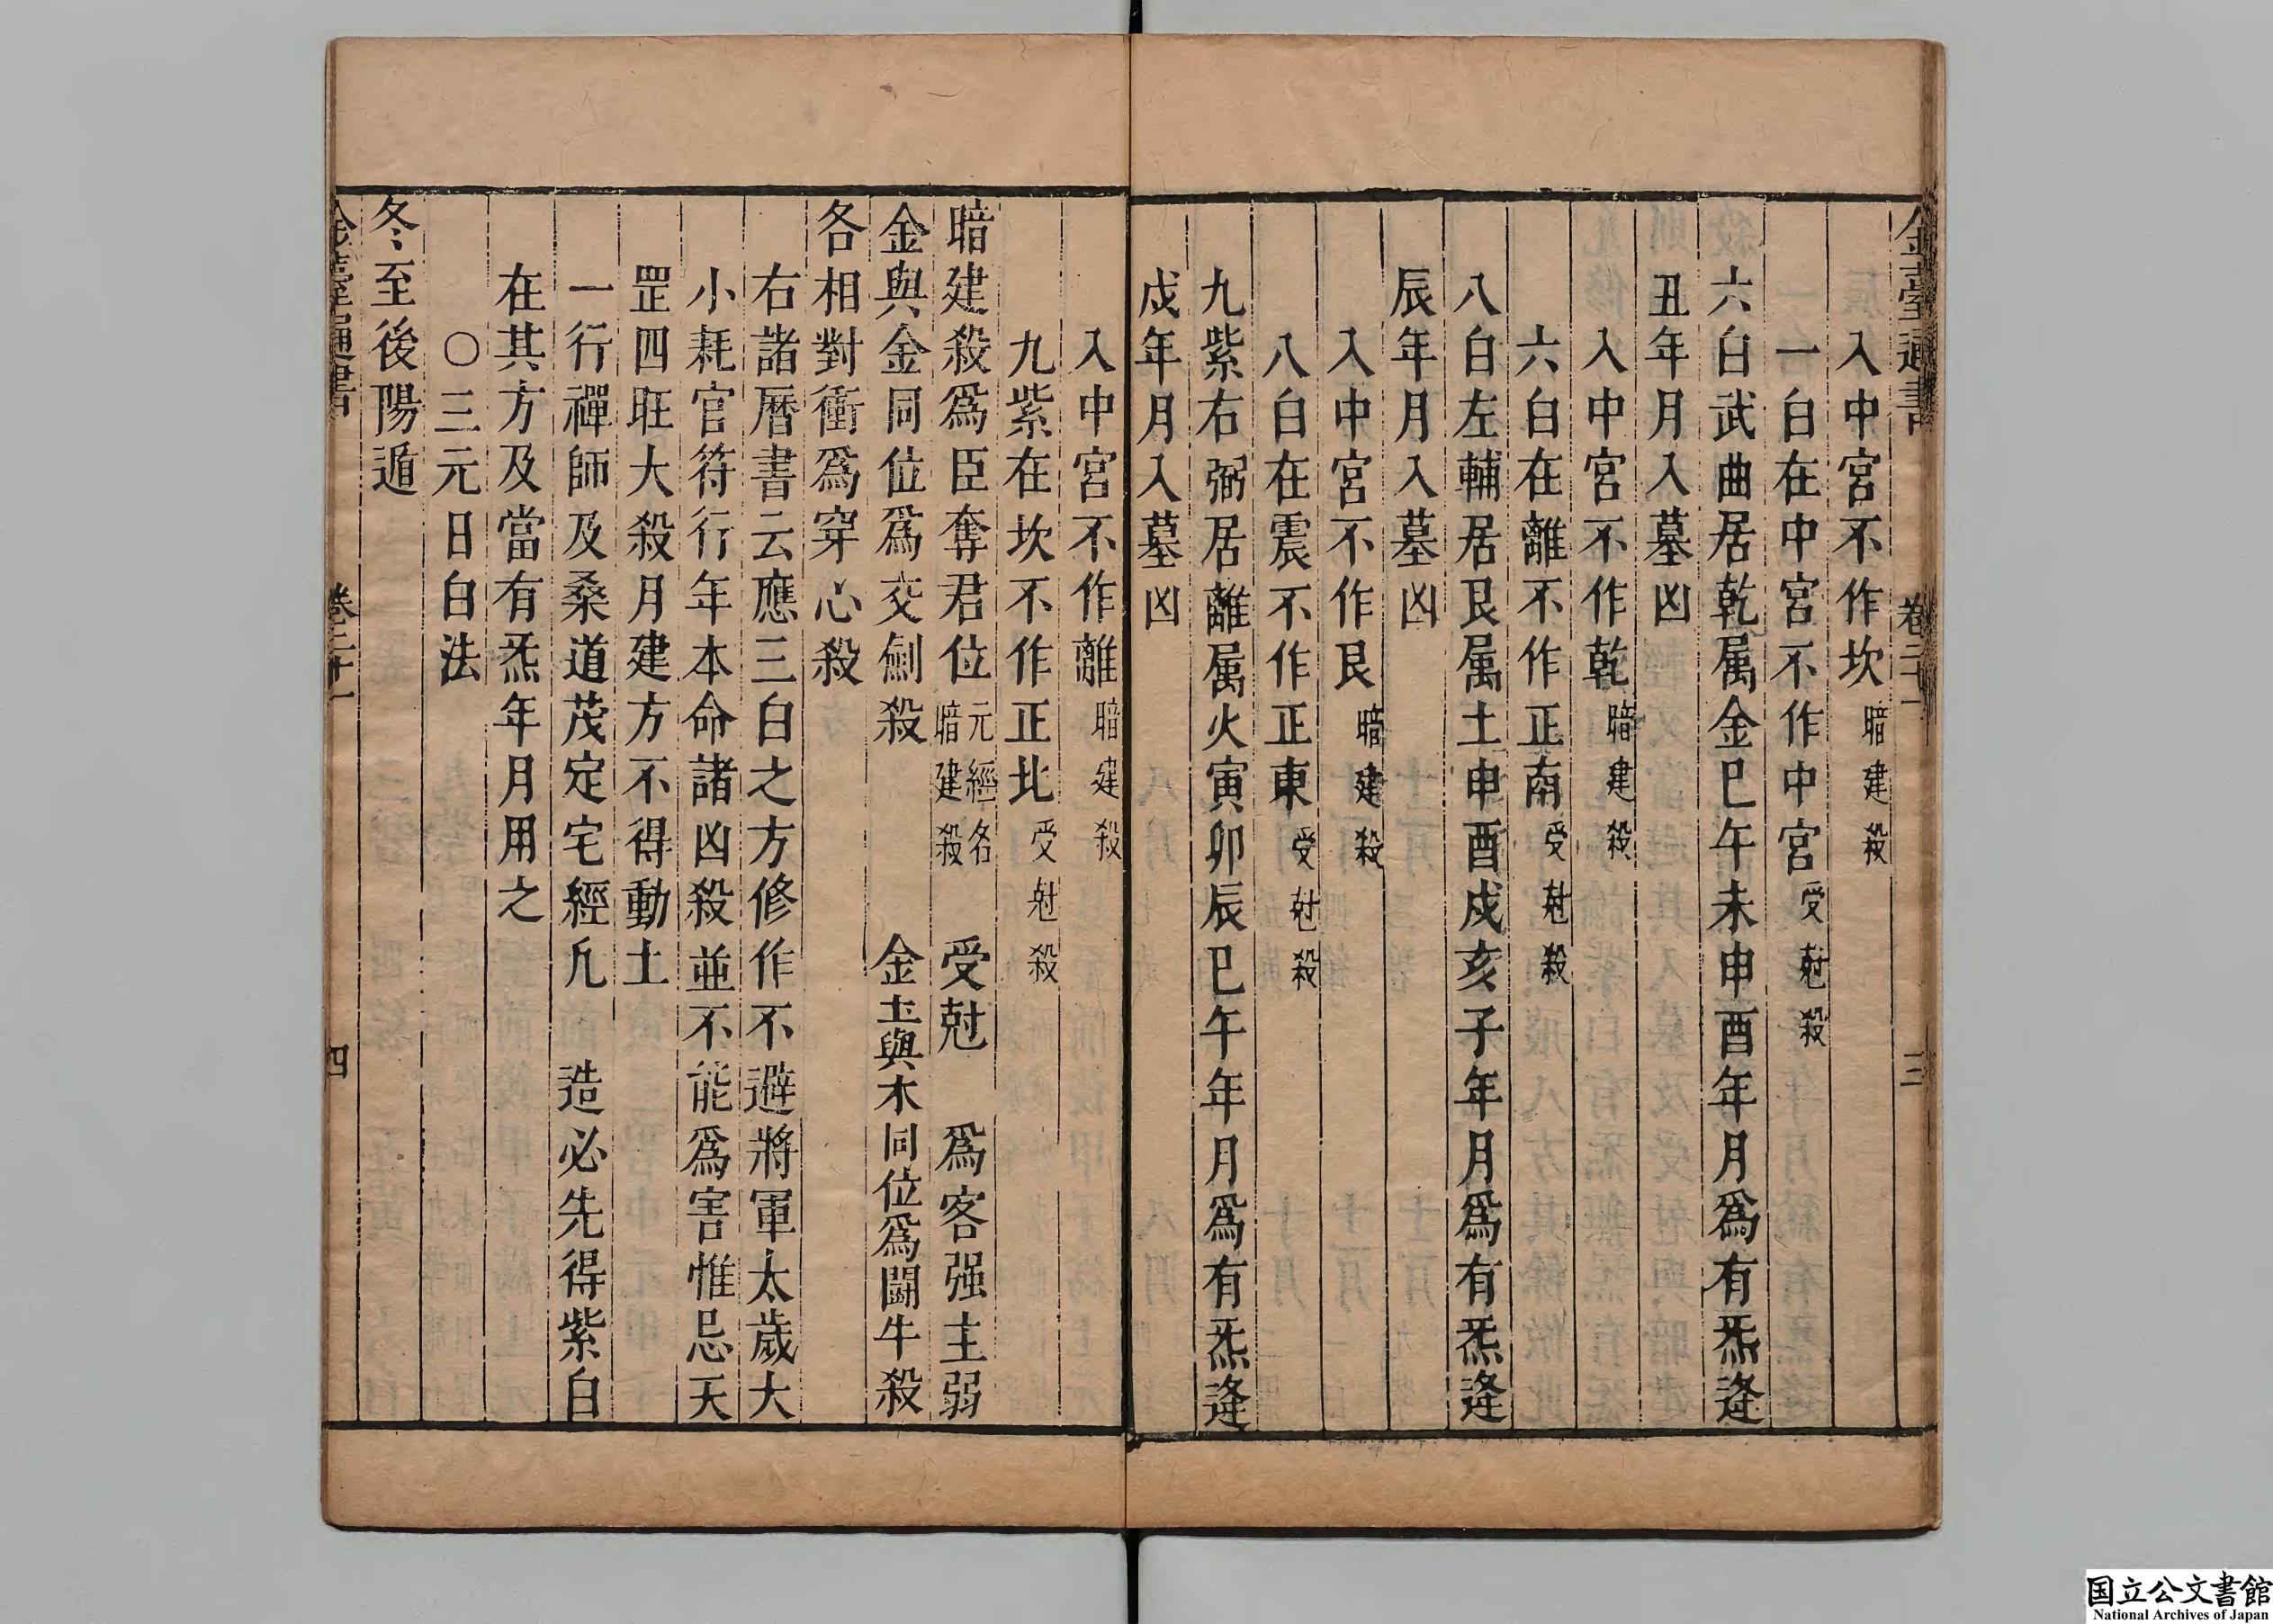 金臺通書 卷二十一 三
入中宮不作坎暗建殺
一白在中宮不作中宮受尅殺
六白武曲居乾属金巳午未申酉年月爲有炁逢
丑年月入墓凶
入中宮不作乾暗建殺
六白在離不作正南受尅殺
八白左輔居艮属土申酉戌亥子年月爲有炁逢
辰年月入墓凶
入中宮不作艮暗建殺
八白在震不作正東受尅殺
九紫右弼居離属火寅卯辰巳午年月爲有炁逢
戌年月入墓凶
入中宮不作離暗建殺
九紫在坎不作正北受尅殺
暗建殺爲臣奪君位元經名暗建殺 受尅 爲客强主弱
金與金同位爲交劍殺 金土與木同位爲鬪牛殺
各相對衝爲穿心殺
右諸曆書云應三白之方修作不避將軍太歲大
小耗官符行年本命諸凶殺並不能爲害惟忌天
罡四旺大殺月建方不得動土
一行禪師及桑道茂定宅經凢 造必先得紫白
在其方及當有炁年月用之
〇三元日白法
冬至後陽遁
金臺通書 卷二十一 四
国立公文書館
National Archives of Japan